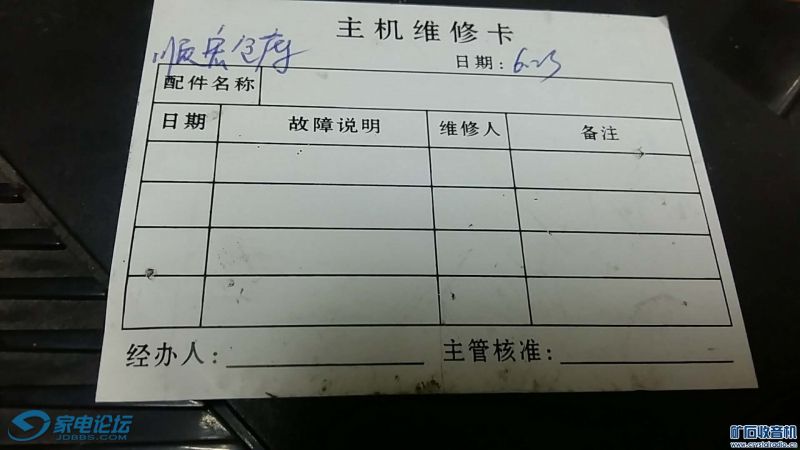 主机维修卡
顺宏仓库
日期：6.23
配件名称
日期 故障说明 维修人 备注
经办人： 主管核准：
家电论坛
JDBBS.COM
矿石收音机
www.crystalradio.cn